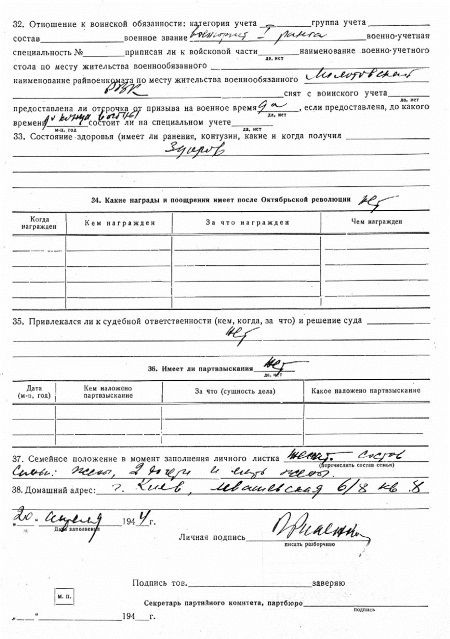 32. Отношение к воинской обязанности: категория учета I группа учета
состав военное звание I ранга военно-учетная
специальность № приписан ли к войсковой части наименование военно-учетного
да, нет
стола по месту жительства военнообязанного
наименование райвоенкомата по месту жительства военнообязанного Молотовский
РВК снят с воинского учета
да, нет
предоставлена ли отсрочка от призыва на военное время да, если предоставлена, до какого
да, нет
времени до конца войны состоит ли на специальном учете
м-ц, год да, нет
33. Состояние здоровья (имеет ли ранения, контузии, какие и когда получил)
Здоров
34. Какие награды и поощрения имеет после Октябрьской революции нет
Когда награжден Кем награжден За что награжден Чем награжден
35. Привлекался ли к судебной ответственности (кем, когда, за что) и решение суда
нет
36. Имеет ли партвзыскания нет
да, нет
Дата (м-ц, год) Кем наложено партвзыскание За что (сущность дела) Какое наложено партвзыскание
37. Семейное положение в момент заполнения личного листка женат. Состав
(перечислить состав семьи)
семьи: жены, 2 дочери и мать жены.
38. Домашний адрес: г. Киев, Левашевская 6/8 кв 8
„20“ апреля 1944 г.
Дата заполнения
Личная подпись
писать разборчиво
Подпись тов. заверяю
м. п.
Секретарь партийного комитета, партбюро
подпись
„ “ 194 г.